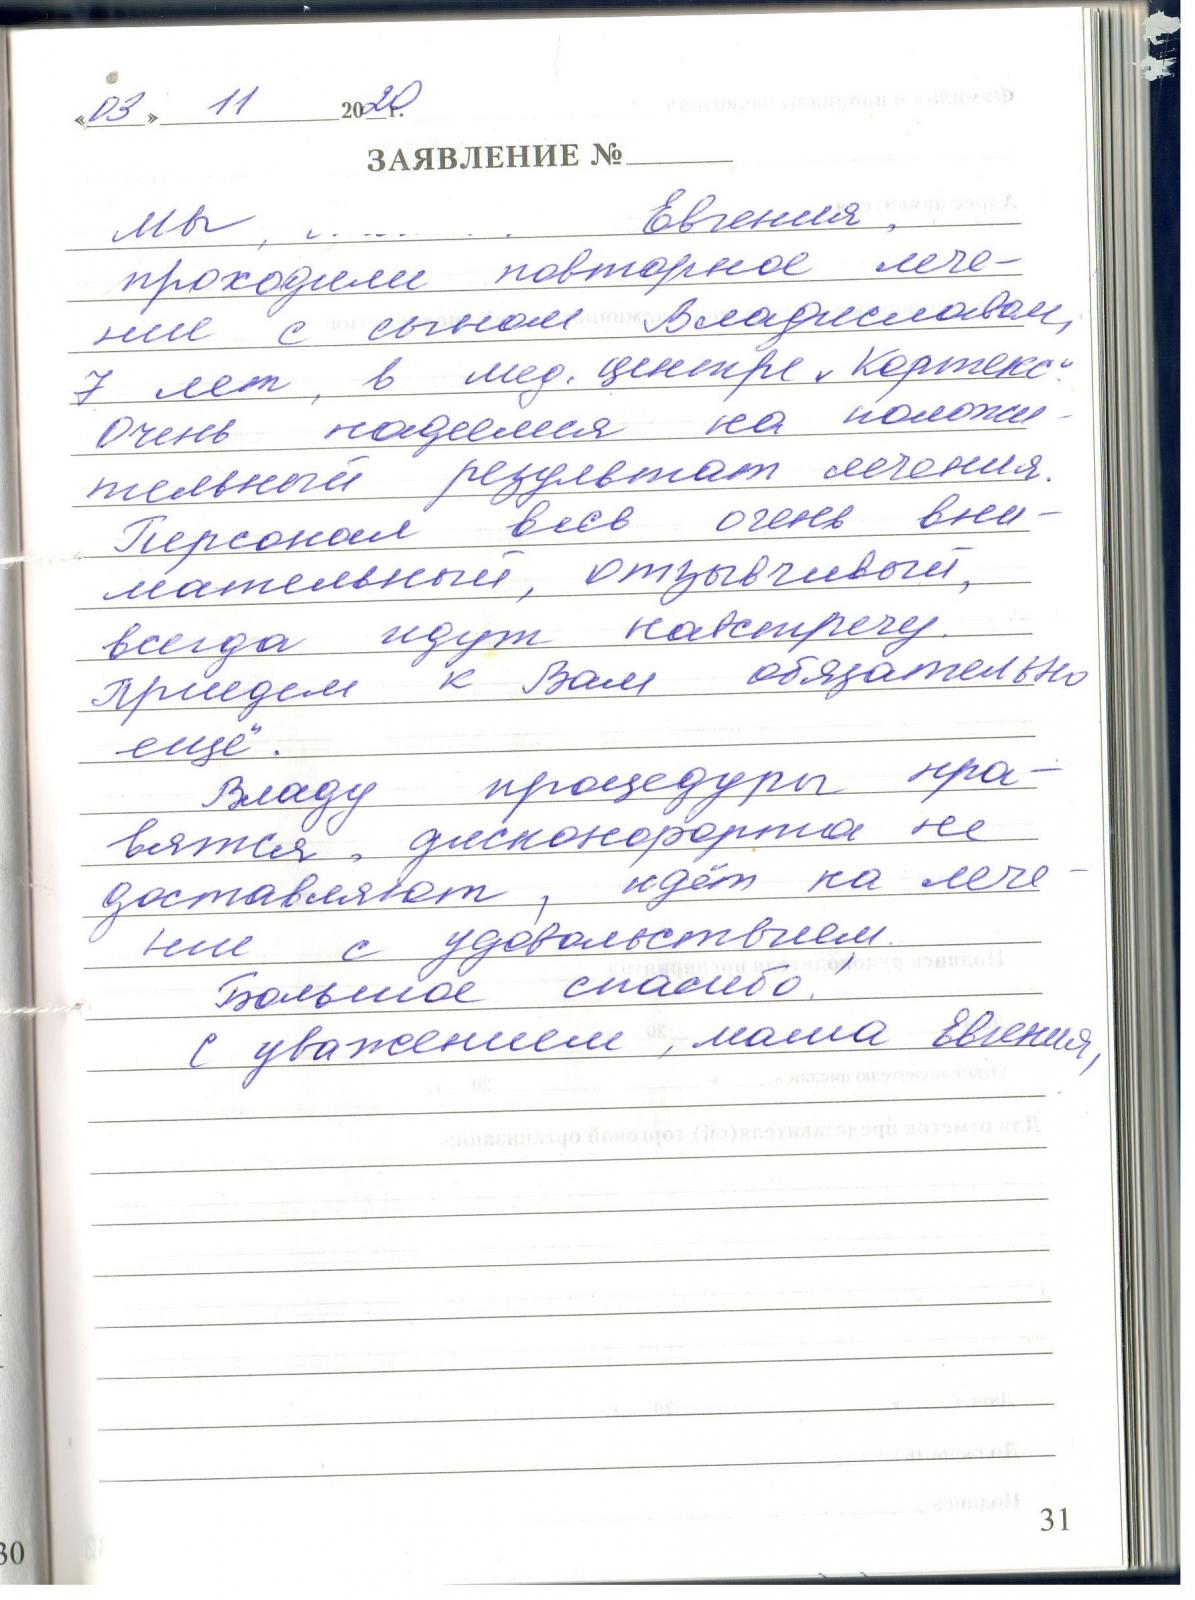 «03» 11 2020 г.
ЗАЯВЛЕНИЕ №
Мы, Евгения,
проходили повторное лече-
ние с сыном Владиславом,
7 лет, в мед. центре „Кортекс".
Очень надеемся на положи-
тельный результат лечения.
Персонал весь очень вни-
мательный, отзывчивый,
всегда идут навстречу.
Приедем к Вам обязательно
ещё.
Владу процедуры нра-
вятся, дискомфорта не
доставляют, идёт на лече-
ние с удовольствием.
Большое спасибо!
С уважением, мама Евгения,
31
30